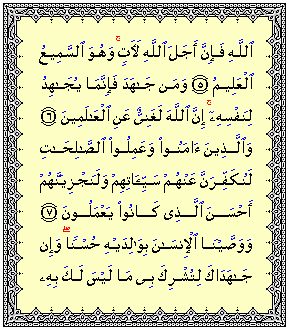 ٱللَّهِ فَإِنَّ أَجَلَ ٱللَّهِ لَأٓتٍۢ ۚ وَهُوَ ٱلسَّمِيعُ
ٱلْعَلِيمُ ۝٥ وَمَن جَـٰهَدَ فَإِنَّمَا يُجَـٰهِدُ
لِنَفْسِهِۦٓ ۚ إِنَّ ٱللَّهَ لَغَنِىٌّ عَنِ ٱلْعَـٰلَمِينَ ۝٦
وَٱلَّذِينَ ءَامَنُوا۟ وَعَمِلُوا۟ ٱلصَّـٰلِحَـٰتِ
لَنُكَفِّرَنَّ عَنْهُمْ سَيِّـَٔاتِهِمْ وَلَنَجْزِيَنَّهُمْ
أَحْسَنَ ٱلَّذِى كَانُوا۟ يَعْمَلُونَ ۝٧
وَوَصَّيْنَا ٱلْإِنسَـٰنَ بِوَٰلِدَيْهِ حُسْنًۭا ۖ وَإِن
جَـٰهَدَاكَ لِتُشْرِكَ بِى مَا لَيْسَ لَكَ بِهِۦ